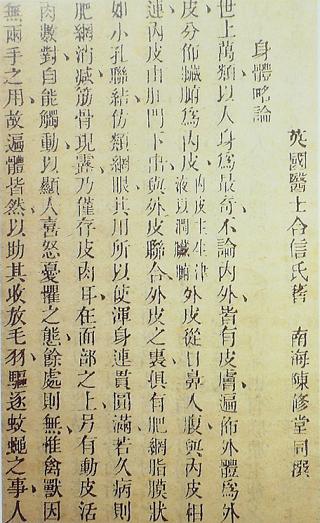 英國醫士合信氏著　南海陳修堂同撰
身體略論
世上萬類以人身爲最奇不論内外皆有皮膚遍佈外體爲外
皮分佈臟腑爲内皮内皮主生津液以潤臟腑外皮從口鼻入腹與内皮相
連内皮由肛門下出與外皮聯合外皮之裏俱有肥網脂膜狀
如小孔聯結仿類網眼其用所以使渾身連貫圓滿若久病則
肥網消減筋骨現露乃僅存皮肉耳在面部之上另有動皮活
肉數對自能觸動以顯人喜怒憂懼之態餘處則無惟禽獸因
無兩手之用故遍體皆然以助其收放毛羽驅逐蚊蠅之事人